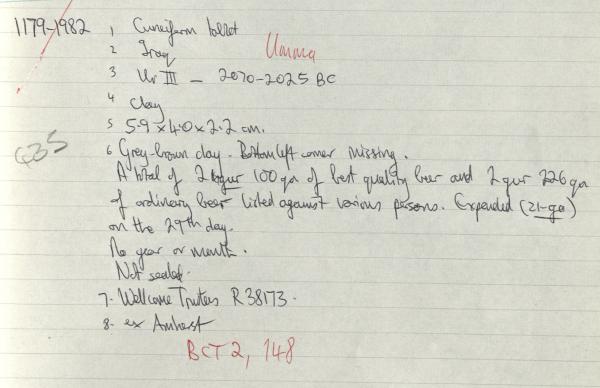 1179-1982 1 Cuneiform tablet
2 Iraq Umma
3 Ur III - 2070-2025 BC
4 Clay
5 5.9 x 4.0 x 2.2 cm.
635
6 Grey-brown clay. Bottom left corner missing.
A total of 2 gur 100 qa of best quality beer and 2 gur 226 qa
of ordinary beer listed against various persons. Expended (zi-ga)
on the 29th day.
No year or month.
Not sealed.
7. Wellcome Trustees R 38173.
8. ex Amherst
BCT 2, 148